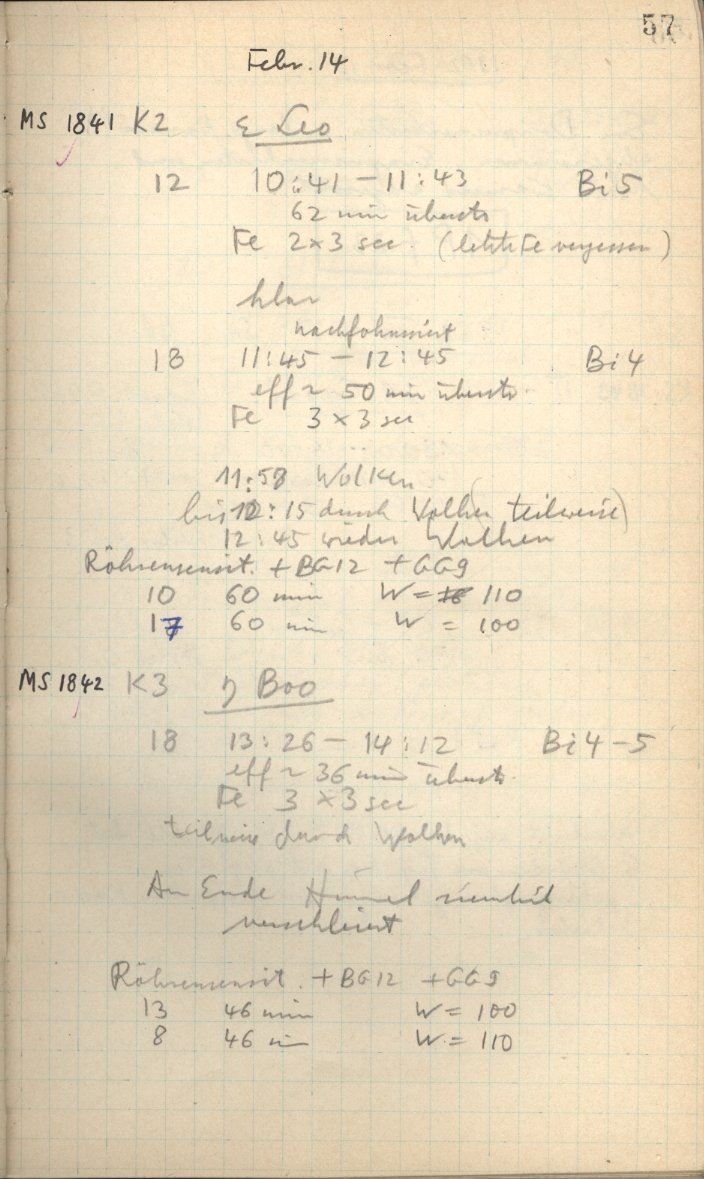 57
Febr. 14
MS 1841 K2 ε Leo
12 10:41 – 11:43 Bi 5
62 min überstr
Fe 2×3 sec. (letzte Fe vergessen)
klar
nachfokussiert
18 11:45 – 12:45 Bi 4
eff ~ 50 min überstr.
Fe 3×3 sec
11:58 Wolken
bis 12:15 durch Wolken (teilweise)
12:45 wieder Wolken
Röhrensensit. + BG12 + GG9
10 60 min W = 110
17 60 min W = 100
MS 1842 K3 η Boo
18 13:26 – 14:12 Bi 4–5
eff ~ 36 min überstr.
Fe 3×3 sec
teilweise durch Wolken
Am Ende Himmel ziemlich
verschleiert
Röhrensensit. + BG12 + GG9
13 46 min W = 100
8 46 min W = 110